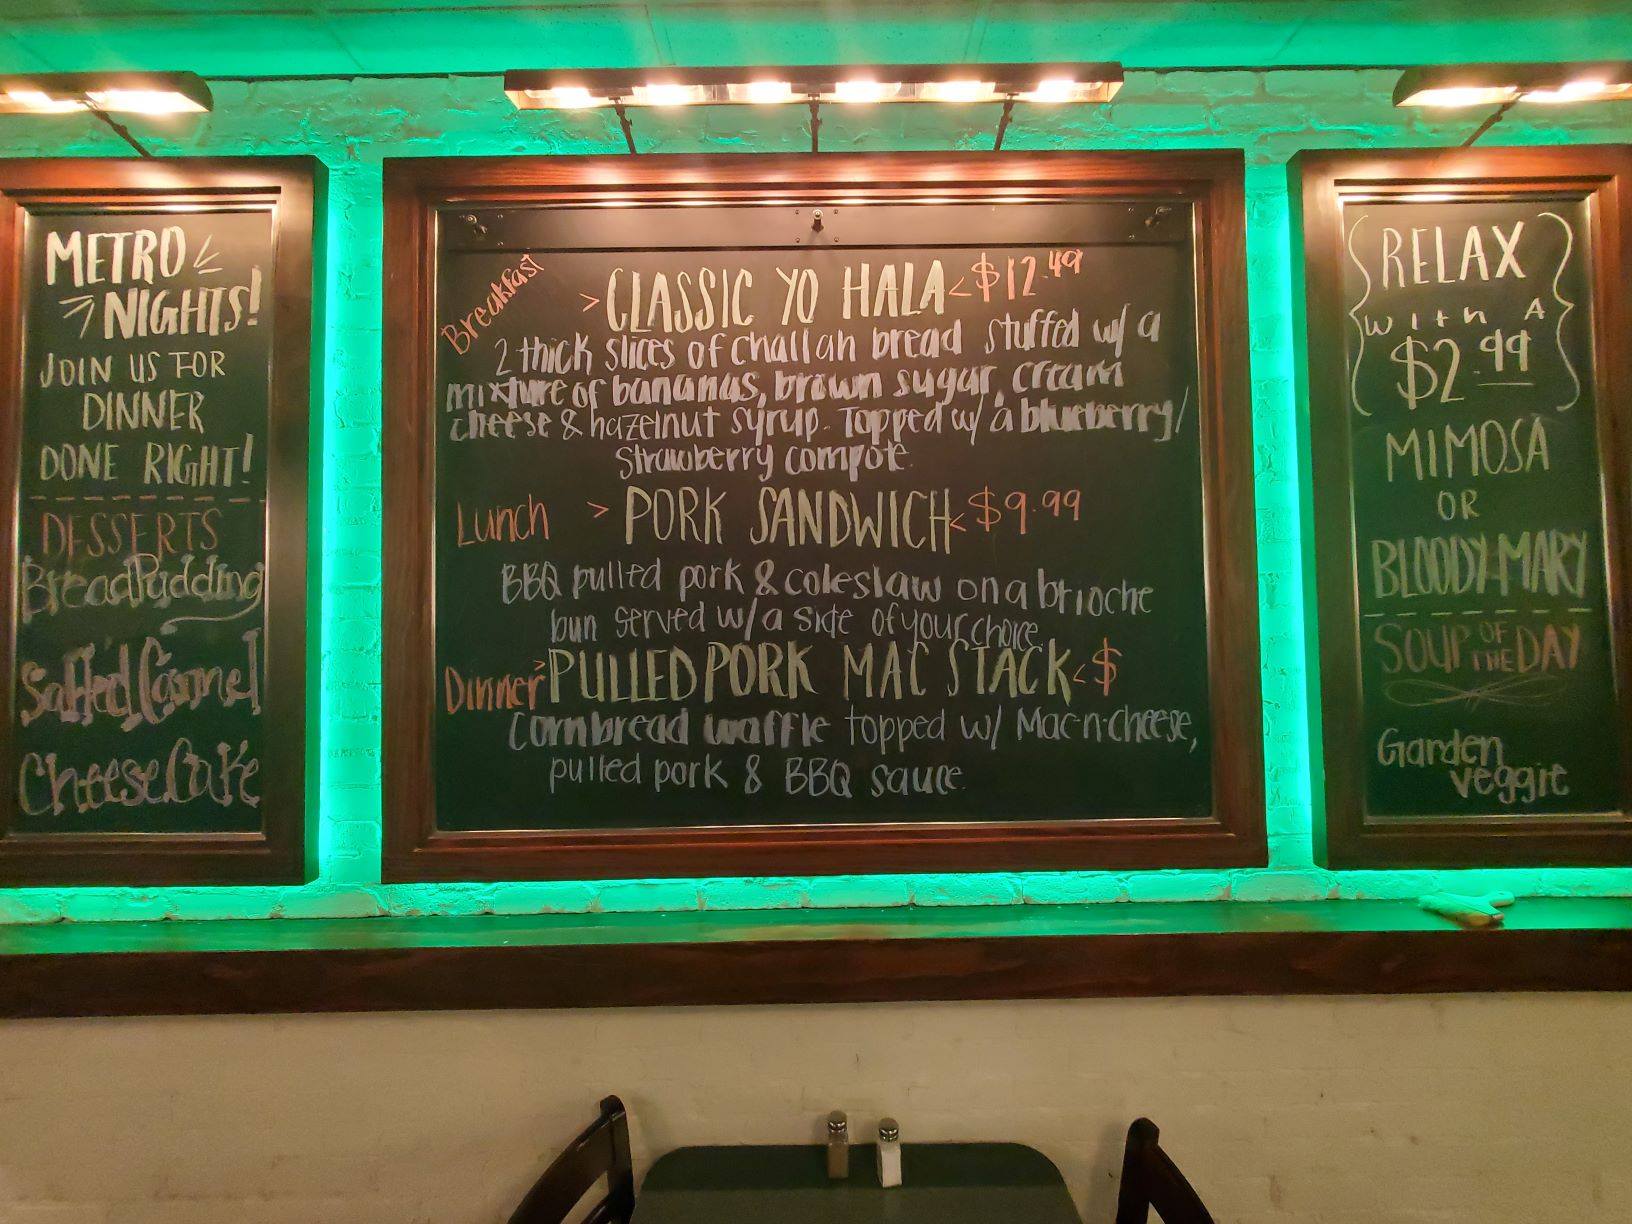 METRO
NIGHTS!
JOIN US FOR
DINNER
DONE RIGHT!
DESSERTS
Bread Pudding
Salted Caramel
Cheese Cake
Breakfast > CLASSIC YO HALA < $12.49
2 thick slices of challah bread stuffed w/ a
mixture of bananas, brown sugar, cream
cheese & hazelnut syrup. Topped w/ a blueberry/
Strawberry compote.
Lunch > PORK SANDWICH < $9.99
BBQ pulled pork & coleslaw on a brioche
bun served w/ a side of your choice.
Dinner > PULLED PORK MAC STACK < $
Cornbread waffle topped w/ Mac-n-cheese,
pulled pork & BBQ sauce.
RELAX
with A
$2.99
MIMOSA
OR
BLOODY MARY
SOUP OF THE DAY
Garden
veggie